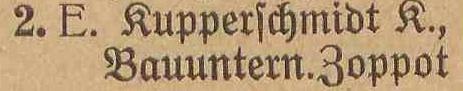 2. E. Kupperſchmidt K.,
Bauuntern. Zoppot